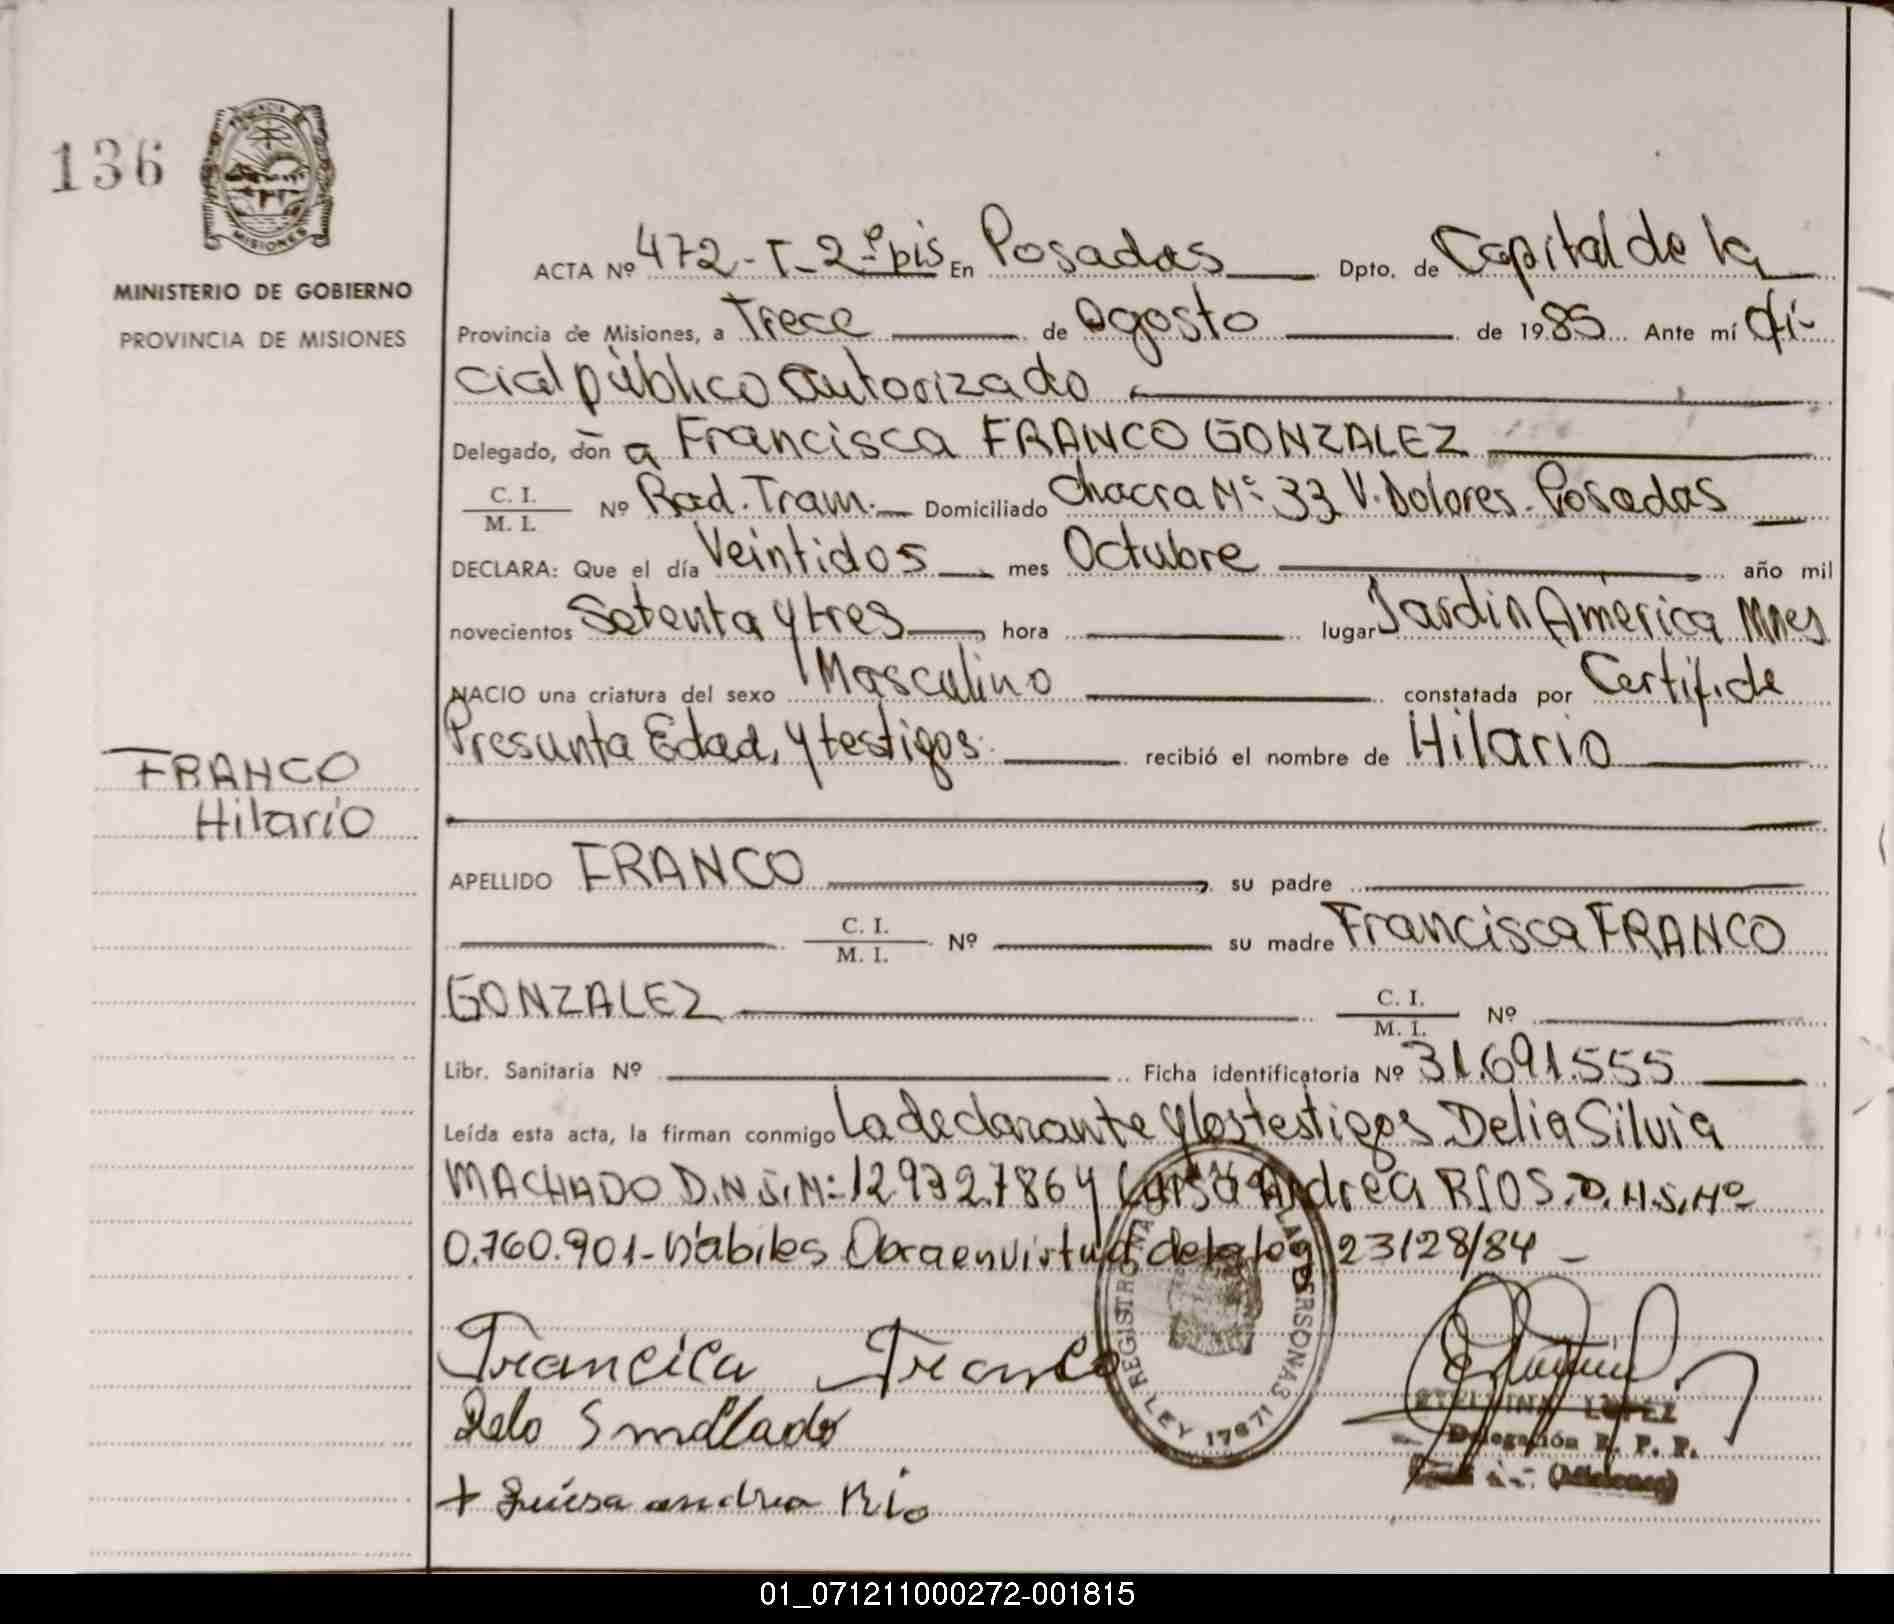 136
PROVINCIA DE
MISIONES
MINISTERIO DE GOBIERNO
PROVINCIA DE MISIONES
FRANCO
Hilario
ACTA Nº 472-T-2º bis En Posadas Dpto. de Capital de la
Provincia de Misiones, a Trece de Agosto de 1985 Ante mí Ofi-
cial público autorizado
Delegado, don a Francisca FRANCO GONZALEZ
C. I.
M. I. Nº Rad. Tram. Domiciliado Chacra Nº 33 V. Dolores. Posadas
DECLARA: Que el día Veintidos mes Octubre año mil
novecientos Setenta y tres, hora lugar Jardin América Mnes
NACIO una criatura del sexo Masculino constatada por Certif. de
Presunta Edad, y testigos. recibió el nombre de Hilario
APELLIDO FRANCO, su padre
C. I.
M. I. Nº su madre Francisca FRANCO
GONZALEZ C. I.
M. I. Nº
Libr. Sanitaria Nº Ficha identificatoria Nº 31.691.555
Leída esta acta, la firman conmigo la declarante y los testigos Delia Silvia
MACHADO D.N.I. Nº 12.932.786 y Luisa Andrea RIOS. D.N.I. Nº
0.760.901 - hábiles Obra en virtud de la ley 23128/84 -
Francica Franco
+ Luisa andrea Rio
REGISTRO NACIONAL DE LAS PERSONAS
LEY 17671
LOPEZ
Delegación R. P. P.
(Misiones)
01_071211000272-001815